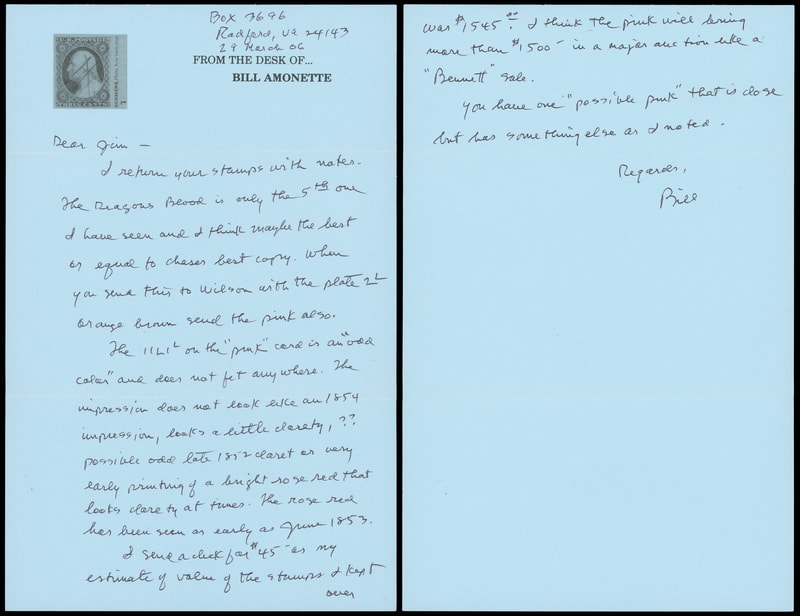 Box 3696
Radford, Va 24143
29 March 06
FROM THE DESK OF...
BILL AMONETTE
U.S. POSTAGE
THREE CENTS
Dear Jim —
I return your stamps with notes.
The Dragons Blood is only the 5th one
I have seen and I think maybe the best
or equal to chases best copy. When
you send this to Wilson with the plate 2L
orange brown send the pink also.
The 11L1L on the "pink" card is an "odd
color" and does not fit anywhere. The
impression does not look like an 1854
impression, looks a little clarety, ??
possible odd late 1852 claret or very
early printing of a bright rose red that
looks clarety at times. The rose red
has been seen as early as June 1853.
I send a check for $45 - as my
estimate of value of the stamps I kept
over
was $1545. I think the pink will bring
more than $1500 - in a major auction like a
"Bennett" sale.
You have one "possible pink" that is close
but has something else as I noted.
Regards,
Bill